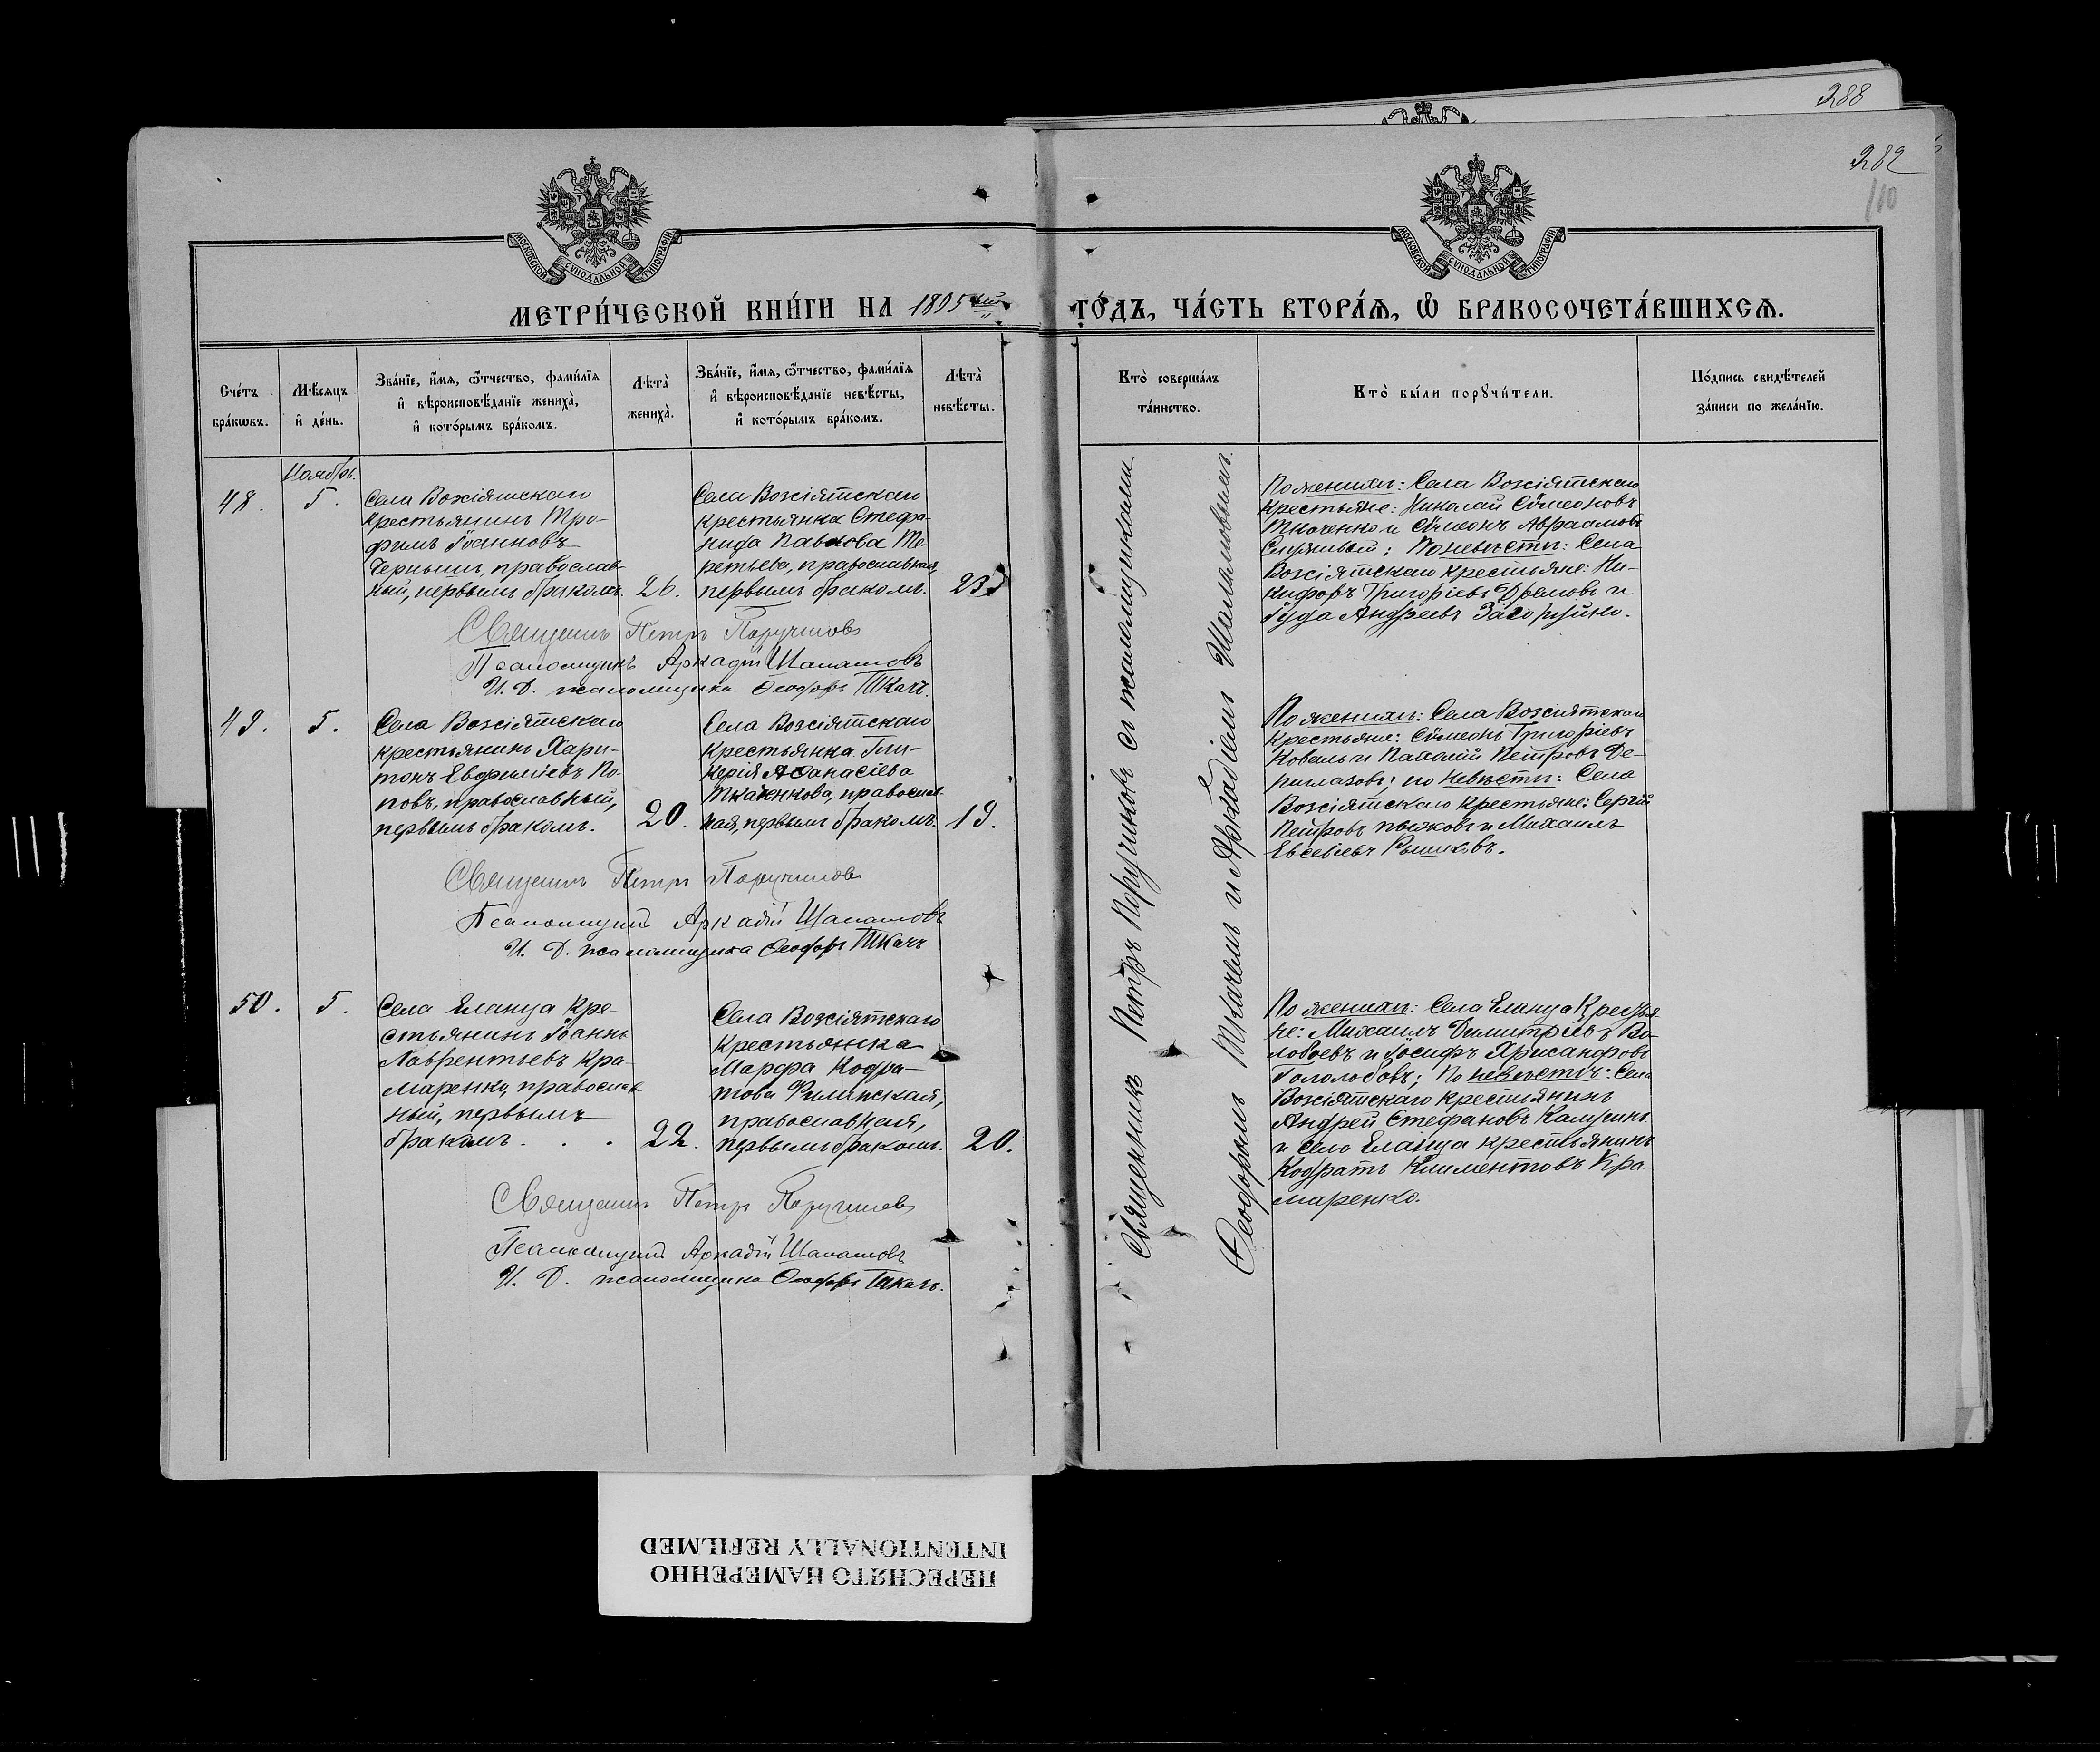 288
282
110
МОСКОВСКОЙ СѴНОДАЛЬНОЙ ТИПОГРАФІИ
МОСКОВСКОЙ СѴНОДАЛЬНОЙ ТИПОГРАФІИ
МЕТРИ́ЧЕСКОЙ КНИ́ГИ НА 1895ый
ГО́ДЪ, ЧА́СТЬ ВТОРА́Ѧ, Ѽ БРАКОСОЧЕТА́ВШИХСѦ.
Сче́тъ бра́кѡвъ.
Мѣ́сяцъ и҆ де́нь.
Зва́нїе, и҆́мѧ, ѻ҆́тчество, фами́лїѧ
и҆ вѣроисповѣ́данїе жениха̀,
и҆ кото́рымъ бра́комъ.
Лѣта̀ жениха̀.
Зва́нїе, и҆́мѧ, ѻ҆́тчество, фами́лїѧ
и҆ вѣроисповѣ́данїе невѣ́сты,
и҆ кото́рымъ бра́комъ.
Лѣта̀ невѣ́сты.
Кто̀ соверша́лъ та́инство.
Кто̀ бы́ли порꙋчи́тели.
По́дпись свидѣ́телей
за́писи по жела́нїю.
Ноябрь.
48.
5.
Села Возсіятскаго
крестьянинъ Тро-
фимъ Іоанновъ
Черныш, православ-
ный, первымъ бракомъ.
26.
Села Возсіятскаго
крестьянка Стефа-
нида Павлова Те-
ретьева, православная,
первымъ бракомъ.
23
По женихѣ: Села Возсіятскаго
крестьяне: Николай Сѵмеоновъ
Ткаченко и Сѵмеонъ Авраамовъ
По невѣстѣ: Села
Возсіятскаго крестьяне: Ни-
кифоръ Григоріевъ и
Іуда Андреевъ Загоруйко.
Священникъ Петръ Поручиковъ
Псаломщикъ Аркадій Шаламовъ
И. Д. псаломщика Ѳеофилъ Ткачъ.
49.
5.
Села Возсіятскаго
крестьянинъ Хари-
тонъ Евфиміевъ По-
повъ, православный,
первымъ бракомъ.
20.
Села Возсіятскаго
крестьянка Гли-
керія Аѳанасіева
Ткаченкова, православ-
ная, первымъ бракомъ.
19.
По женихѣ: Села Возсіятскаго
крестьяне: Сѵмеонъ Григоріевъ
Коваль и Петровъ Де-
; по невѣстѣ: Села
Возсіятскаго крестьяне: Сергій
Петровъ и Михаилъ
Евсевіевъ
Священникъ Петръ Поручиковъ
Псаломщикъ Аркадій Шаламовъ
И. Д. псаломщика Ѳеофилъ Ткачъ
50.
5.
Села Еланца кре-
стьянинъ Іоаннъ
Лаврентьевъ Кра-
маренко, православ-
ный, первымъ
бракомъ . . .
22.
Села Возсіятскаго
крестьянка
Марфа Кодра-
това Филинская,
православная,
первымъ бракомъ.
20.
По женихѣ: Села Еланца крестья-
не: Михаилъ Димитріевъ Во-
лобоевъ и Іосифъ Хрисанфовъ
Гололобовъ; По невѣстѣ: Села
Возсіятскаго крестьянинъ
Андрей Стефановъ
и села Еланца крестьянинъ
Кодратъ Климентовъ Кра-
маренко.
Священникъ Петръ Поручиковъ
Псаломщикъ Аркадій Шаламовъ
И. Д. псаломщика Ѳеофилъ Ткачъ.
Священникъ Петръ Поручиковъ съ псаломщиками
Ѳеофиломъ Ткачемъ и Аркадіемъ Шаламовымъ.
ПЕРЕСНЯТО НАМЕРЕННО
INTENTIONALLY REFILMED